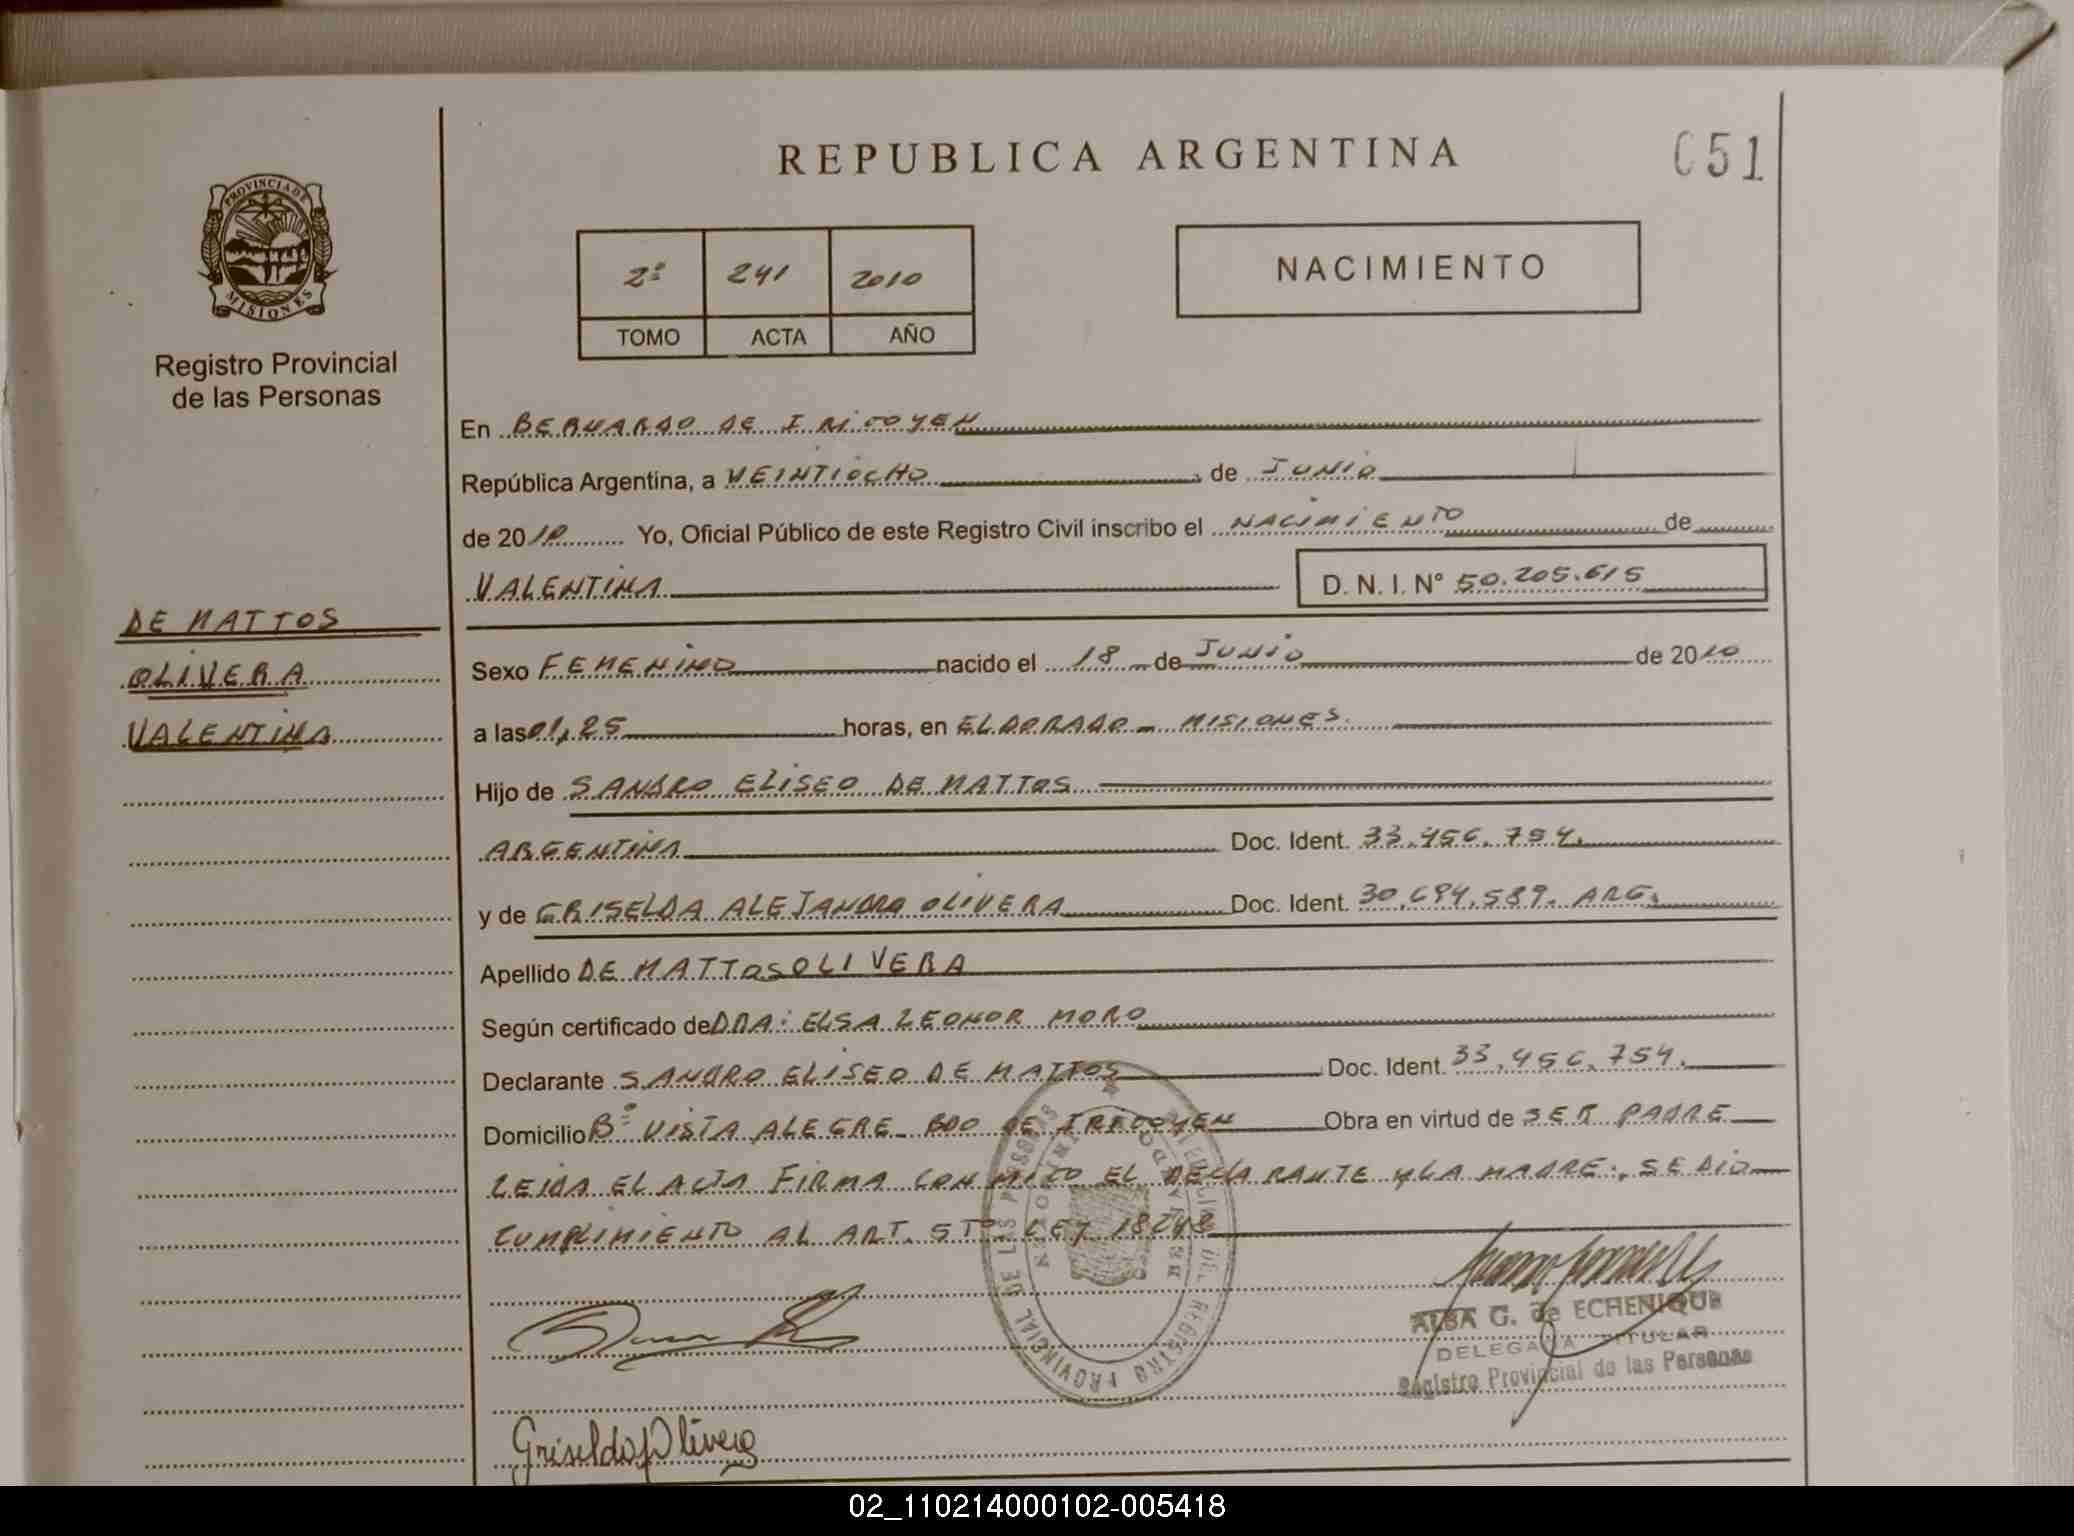 REPUBLICA ARGENTINA
051
PROVINCIA DE
MISIONES
Registro Provincial
de las Personas
2º 241 2010
TOMO ACTA AÑO
NACIMIENTO
En BERNARDO DE IRIGOYEN
República Argentina, a VEINTIOCHO de JUNIO
de 2010 Yo, Oficial Público de este Registro Civil inscribo el NACIMIENTO de
VALENTINA D. N. I. N° 50.205.615
DE MATTOS
OLIVERA
VALENTINA
Sexo FEMENINO nacido el 18 de JUNIO de 2010
a las 01,25 horas, en ELDORADO - MISIONES.
Hijo de SANDRO ELISEO DE MATTOS
ARGENTINA Doc. Ident. 33.456.754.
y de GRISELDA ALEJANDRA OLIVERA Doc. Ident. 30.694.589. ARG.
Apellido DE MATTOS OLIVERA
Según certificado de DRA: ELSA LEONOR MORO
Declarante SANDRO ELISEO DE MATTOS Doc. Ident. 33.456.754.
Domicilio Bº VISTA ALEGRE - BDO DE IRIGOYEN Obra en virtud de SER PADRE
LEIDA EL ACTA FIRMA CONMIGO EL DECLARANTE y LA MADRE:. SE DIO
CUMPLIMIENTO AL ART. 5Tº LEY 18248
ALBA G. de ECHENIQUE
DELEGADA TITULAR
Registro Provincial de las Personas
REGISTRO PROVINCIAL DE LAS PERSONAS
Griselda Olivera
02_110214000102-005418